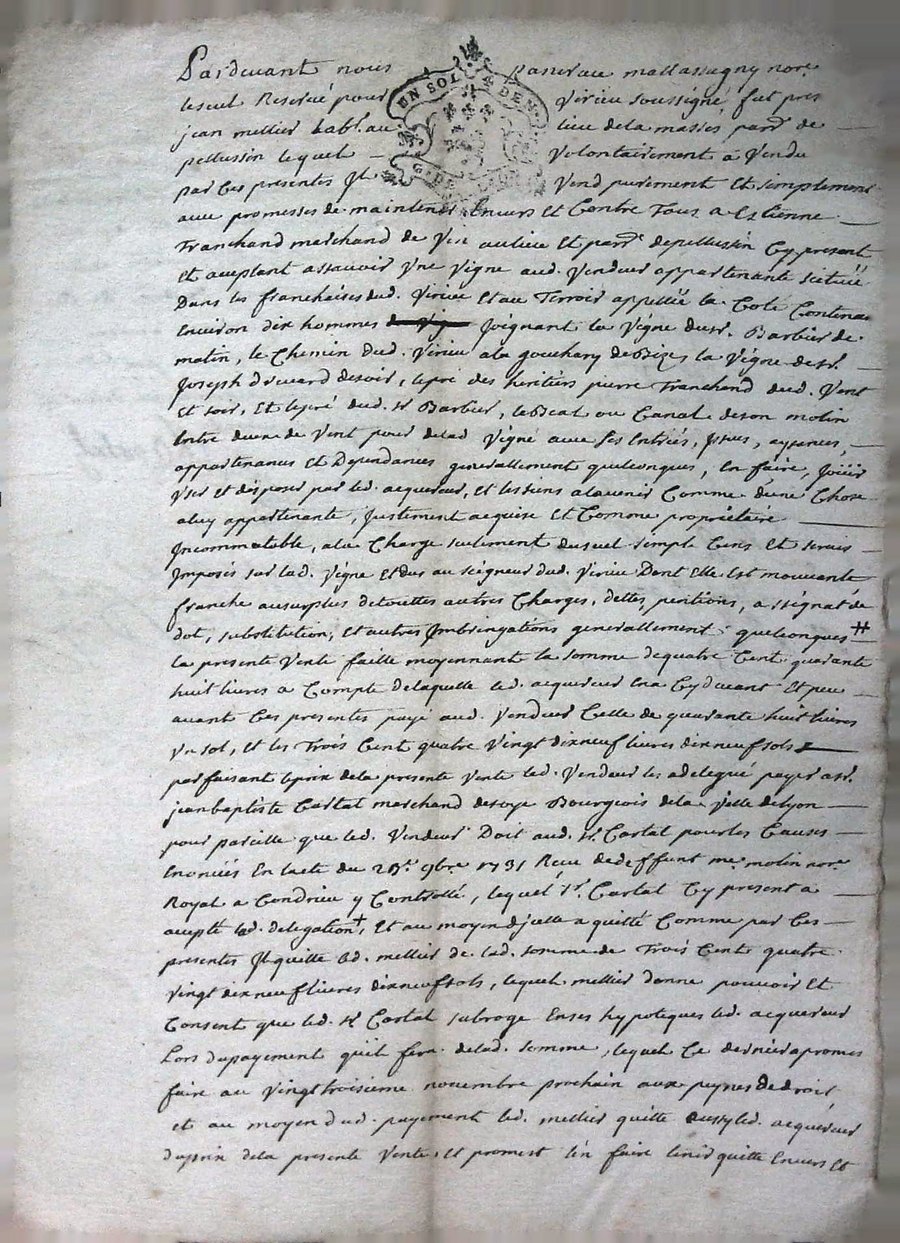 Pardevant nous mallassagny nore.
Reservé pour Virieu soussigné, fut pres
UN SOL 4 DEN.
jean mellier lab.r au lieu dela massés parr. de
pellussin lequel volontairement a Vendu
par Ces presentes Jl Vend purement Et simplement
avec promesses de maintenir Envers Et Contre Tous a Estienne
Franchand marchand de Vin au lieu Et parr. depellussin Cy present
Et aceptant assavoir Une Vigne aud. Vendeur appartenante scituée
Dans les franchisesdud. Virieu Et au Terroir appellée la Coté Contenant
Environ dix hommes Joignant la Vigne du sr. Barbier de
matin, le Chemin dud. Virieu a la de Bize, la Vigne de sr.
Joseph desoir, lepré des heritiers pierre Franchand dud. Vent
Et soir, Et lepré dud. sr Barbier, le Beal ou Canal deson molin
Entre deux de Vent pour delad Vigne avec ses Entrées, Jssues, aysances,
appartenances Et Dependances generallement quelconques, En faire, Joüir
Vser Et disposer par led. acquereur, Et les siens alavenir Comme dune Chose
aluy appartenante, Justement acquise Et Comme propriétaire
Jncommutable, ala Charge seulement du seul simple Cens Et servis
Jmposés sur lad. Vigne Et dus au seigneur dud. Virieu Dont Elle Est mouvante
franche au surplus de touttes autres Charges, dettes, pentions, assignat de
dot, substitution, Et autres Jmbringations generallement quelconques #
la presente Vente faitte moyennant la somme dequatre Cent quarante
huit livres a Compte delaquelle led. acquereur En a Cy devant Et peu
avant Ces presentes payé aud. Vendeur Celle de quarante huit livres
Vn sol, Et les Trois Cent quatre Vingt dixneuf livres dixneuf sols
parfaisant leprix dela presente Vente led. Vendeur les a delegué payer a sr.
jean baptiste Cartal marchand desoye Bourgeois dela Ville delyon
pour pareille que led. Vendeur Doit aud. sr. Cartal pour les Causes
Enoncées En lacte du 9bre. 1731 Receu de deffunt me. molin nore.
Royal a Condrieu y Controllé, lequel sr. Cartal Cy present a
acepté lad. delegation +, Et au moyen djcelle a quitté Comme par Ces
presentes Jl quitte led. mellier de lad. somme de Trois Cent quatre
Vingt dixneuf livres dixneuf sols, lequel mellier donne pouvoir Et
Consent que led. sr Cartal subroge En ses hypoteques led. acquereur
Lors du payement quil fera delad. somme, lequel Ce dernier a promis
faire au Vingt troisieme novembre prochain aux peynes de droit
et au moyen dud. payement led. mellier quitte aussy led. acquereur
du prix dela presente Vente, Et promest l'en faire tenir quitte Envers Et